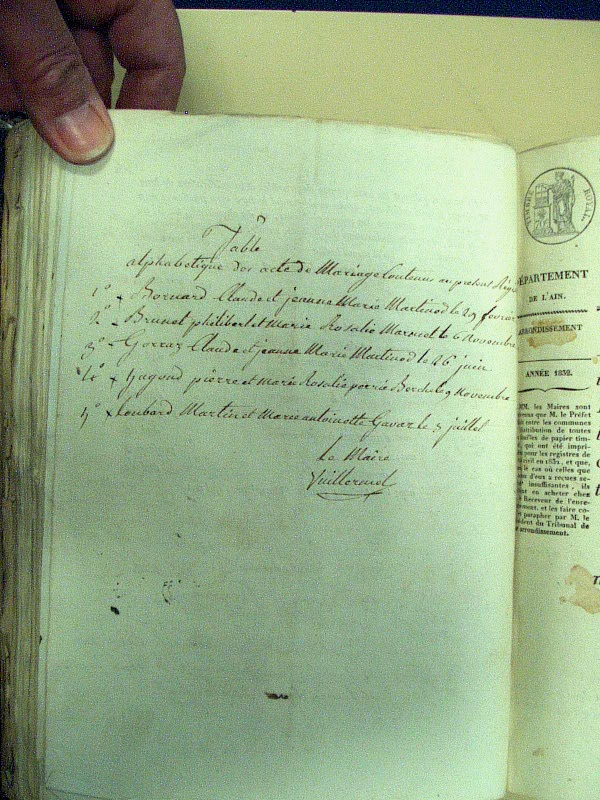 Table
alphabetique des acte de Mariage Contenus au present Regi
1° Bornard Claude et jeanne Marie Martinod le 29 fevrier
2° Brunet philibert et Marie Rosalie le 6 Novembre
3° Gorraz Claude et jeanne Marie Martinod le 26 juin
4° pierre et marie Rosalie le 9 Novembre
5° Loubard Martin et Marie antoinette Gavaz le juillet
le Maire
Vuillerme
TIMBRE ROYAL
DÉPARTEMENT
DE L'AIN.
ARRONDISSEMENT
ANNÉE 1832.
MM. les Maires sont
venus que M. le Préfet
entre les communes
distribution de toutes
feuilles de papier tim-
qui ont été impri-
pour les registres de
civil en 1832, et que,
le cas où celles que
d'eux a reçues se-
insuffisantes, ils
en acheter chez
Receveur de l'enre-
et les faire co-
parapher par M. le
Président du Tribunal de
arrondissement.